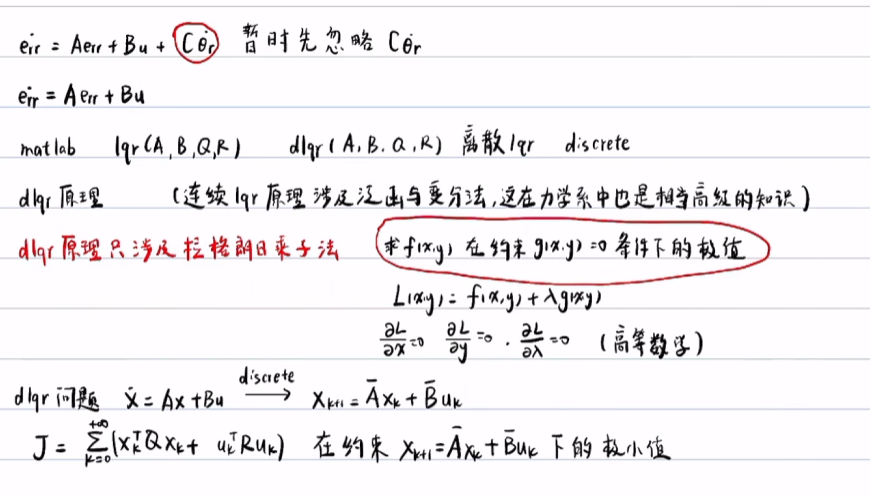 ėrr = Aerr + Bu + Cθ̇r 暂时先忽略 Cθ̇r
ėrr = Aerr + Bu
matlab lqr(A,B,Q,R) dlqr(A,B,Q,R) 离散lqr discrete
dlqr原理 (连续lqr原理涉及泛函与变分法,这在力学系中也是相当高级的知识)
dlqr原理只涉及拉格朗日乘子法 求f(x,y)在约束g(x,y)=0条件下的极值
L(x,y) = f(x,y) + λg(x,y)
∂L/∂x=0 ∂L/∂y=0 · ∂L/∂λ=0 (高等数学)
dlqr问题 ẋ = Ax + Bu discrete → Xk+1 = Āxk + B̄uk
J = Σ(k=0 → +∞)(xkᵀQxk + ukᵀRuk) 在约束 Xk+1 = Āxk + B̄uk 下的极小值